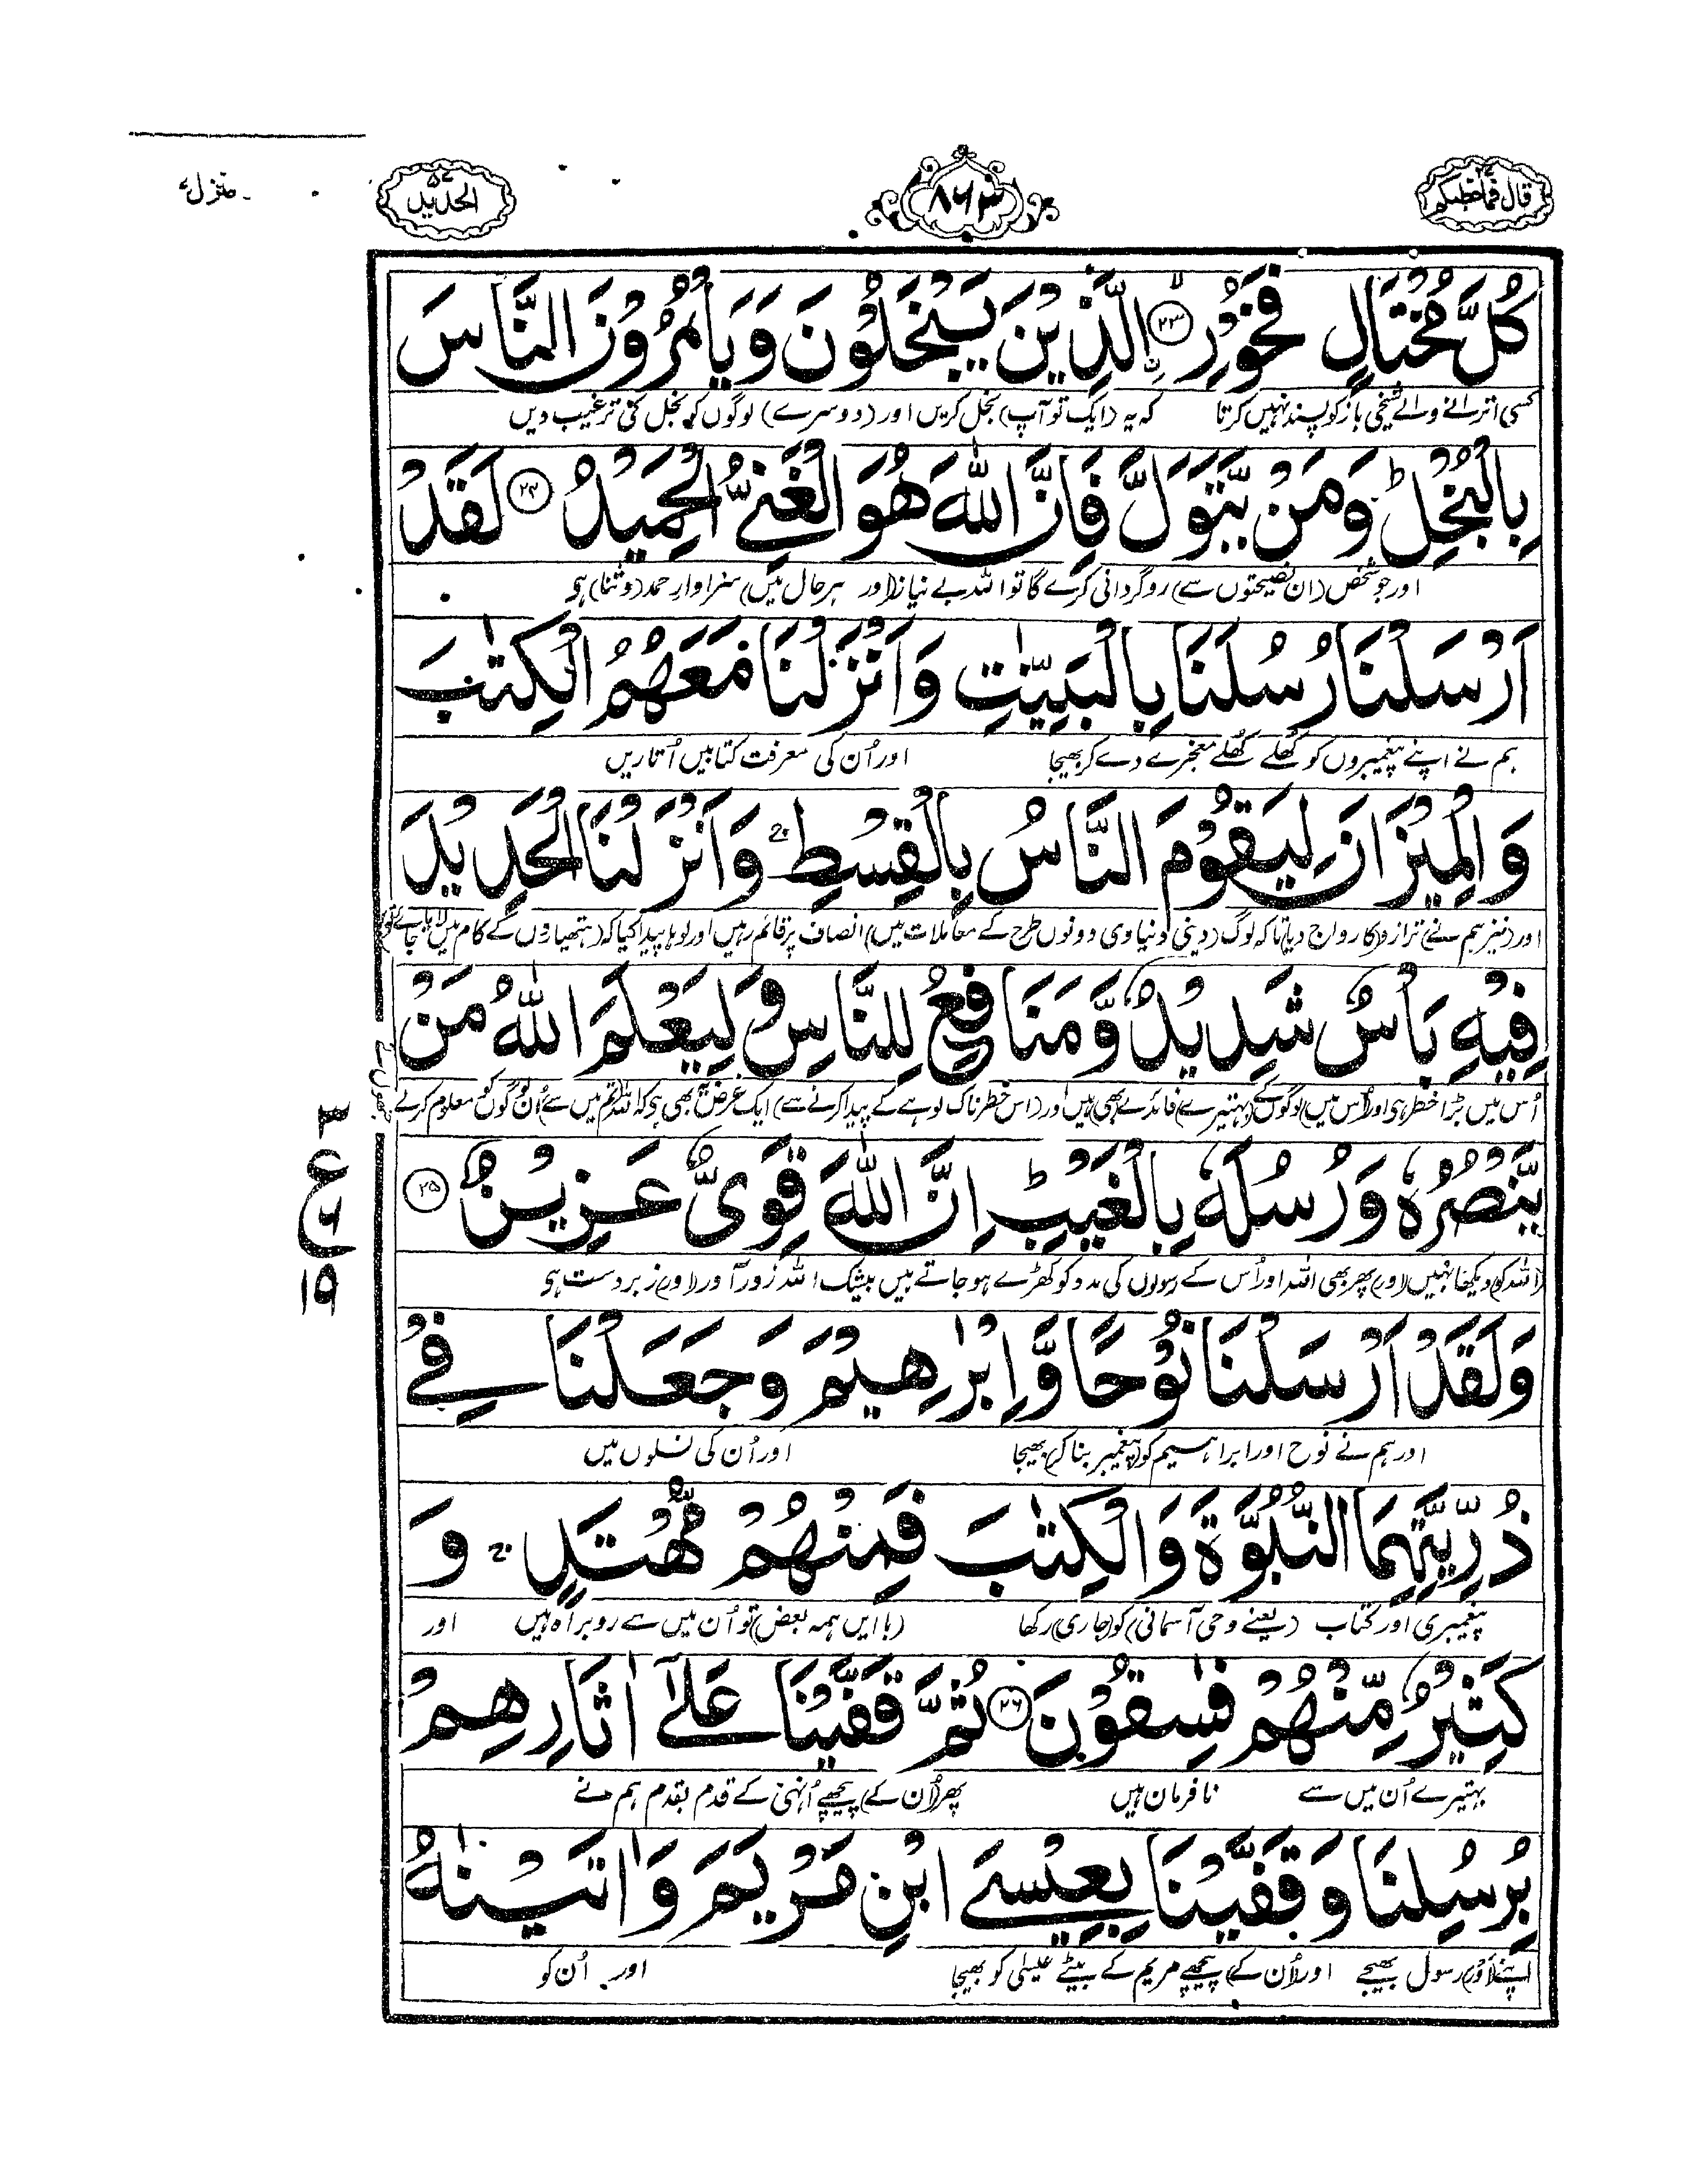 قال فما خطبكم ٢٧
٨٦٣
الحديد ٥٧
منزل ٧
كُلَّ مُخْتَالٍ فَخُوْرِ ۙ﴿۲۳﴾ اِۨلَّذِيْنَ يَبْخَلُوْنَ وَيَاْمُرُوْنَ النَّاسَ
کسی اترانے والے شیخی باز کو پسند نہیں کرتا کہ یہ (ایک تو آپ) بخل کریں اور (دوسرے) لوگوں کو بخل کی ترغیب دیں
بِالْبُخْلِ ؕ وَمَنْ يَّتَوَلَّ فَاِنَّ اللّٰهَ هُوَ الْغَنِيُّ الْحَمِيْدُ ﴿۲۴﴾ لَقَدْ
اور جو شخص (ان نصیحتوں سے) روگردانی کرے گا تو اللہ بے نیاز (اور ہر حال میں) سزاوار حمد (و ثنا) ہو
اَرْسَلْنَا رُسُلَنَا بِالْبَيِّنٰتِ وَاَنْزَلْنَا مَعَهُمُ الْكِتٰبَ
ہم نے اپنے پیغمبروں کو کھلے کھلے معجزے دے کر بھیجا اور اُن کی معرفت کتابیں اُتاریں
وَالْمِيْزَانَ لِيَقُوْمَ النَّاسُ بِالْقِسْطِ ۚ وَاَنْزَلْنَا الْحَدِيْدَ
اور (نیز ہم نے) ترازو (کا رواج دیا) تاکہ لوگ (دینی و دنیاوی دونوں طرح کے معاملات میں) انصاف پر قائم رہیں اور لوہا پیدا کیا کہ (ہتھیاروں کے کام میں لایا جائے تو)
فِيْهِ بَاْسٌ شَدِيْدٌ وَّمَنَافِعُ لِلنَّاسِ وَلِيَعْلَمَ اللّٰهُ مَنْ
اُس میں بڑا خطر ہی اور (اُس میں) لوگوں کے (بہتیرے) فائدے (بھی) ہیں اور (اس خطرناک لوہے کے پیدا کرنے سے) ایک غرض یہ بھی ہی کہ اللہ (تم میں سے) اُن لوگوں کو معلوم کرلے
يَّنْصُرُهٗ وَرُسُلَهٗ بِالْغَيْبِ ؕ اِنَّ اللّٰهَ قَوِيٌّ عَزِيْزٌ ﴿۲۵﴾
٣
ع
٦
١٩
(اللہ کو) دیکھا نہیں (اور) پھر بھی اللہ اور اُس کے رسولوں کی مدد کو کھڑے ہو جاتے ہیں بیشک اللہ زور آور (اور) زبردست ہو
وَلَقَدْ اَرْسَلْنَا نُوْحًا وَّاِبْرٰهِيْمَ وَجَعَلْنَا فِيْ
اور ہم نے نوح اور ابراہیم کو (پیغمبر بنا کر) بھیجا اور اُن کی نسلوں میں
ذُرِّيَّتِهِمَا النُّبُوَّةَ وَالْكِتٰبَ فَمِنْهُمْ مُّهْتَدٍ ۚ وَ
پیغمبری اور کتاب (یعنے وحی آسمانی) کو (جاری) رکھا (با ایں ہمہ بعض) تو اُن میں سے روبراہ ہیں اور
كَثِيْرٌ مِّنْهُمْ فٰسِقُوْنَ ﴿۲۶﴾ ثُمَّ قَفَّيْنَا عَلٰۤى اٰثَارِهِمْ
بہتیرے اُن میں سے نافرمان ہیں پھر (اُن کے) پیچھے اُنہی کے قدم بقدم ہم نے
بِرُسُلِنَا وَقَفَّيْنَا بِعِيْسَى ابْنِ مَرْيَمَ وَاٰتَيْنٰهُ
اپنے (اور) رسول بھیجے اور (اُن کے) پیچھے مریم کے بیٹے عیسٰی کو بھیجا اور اُن کو